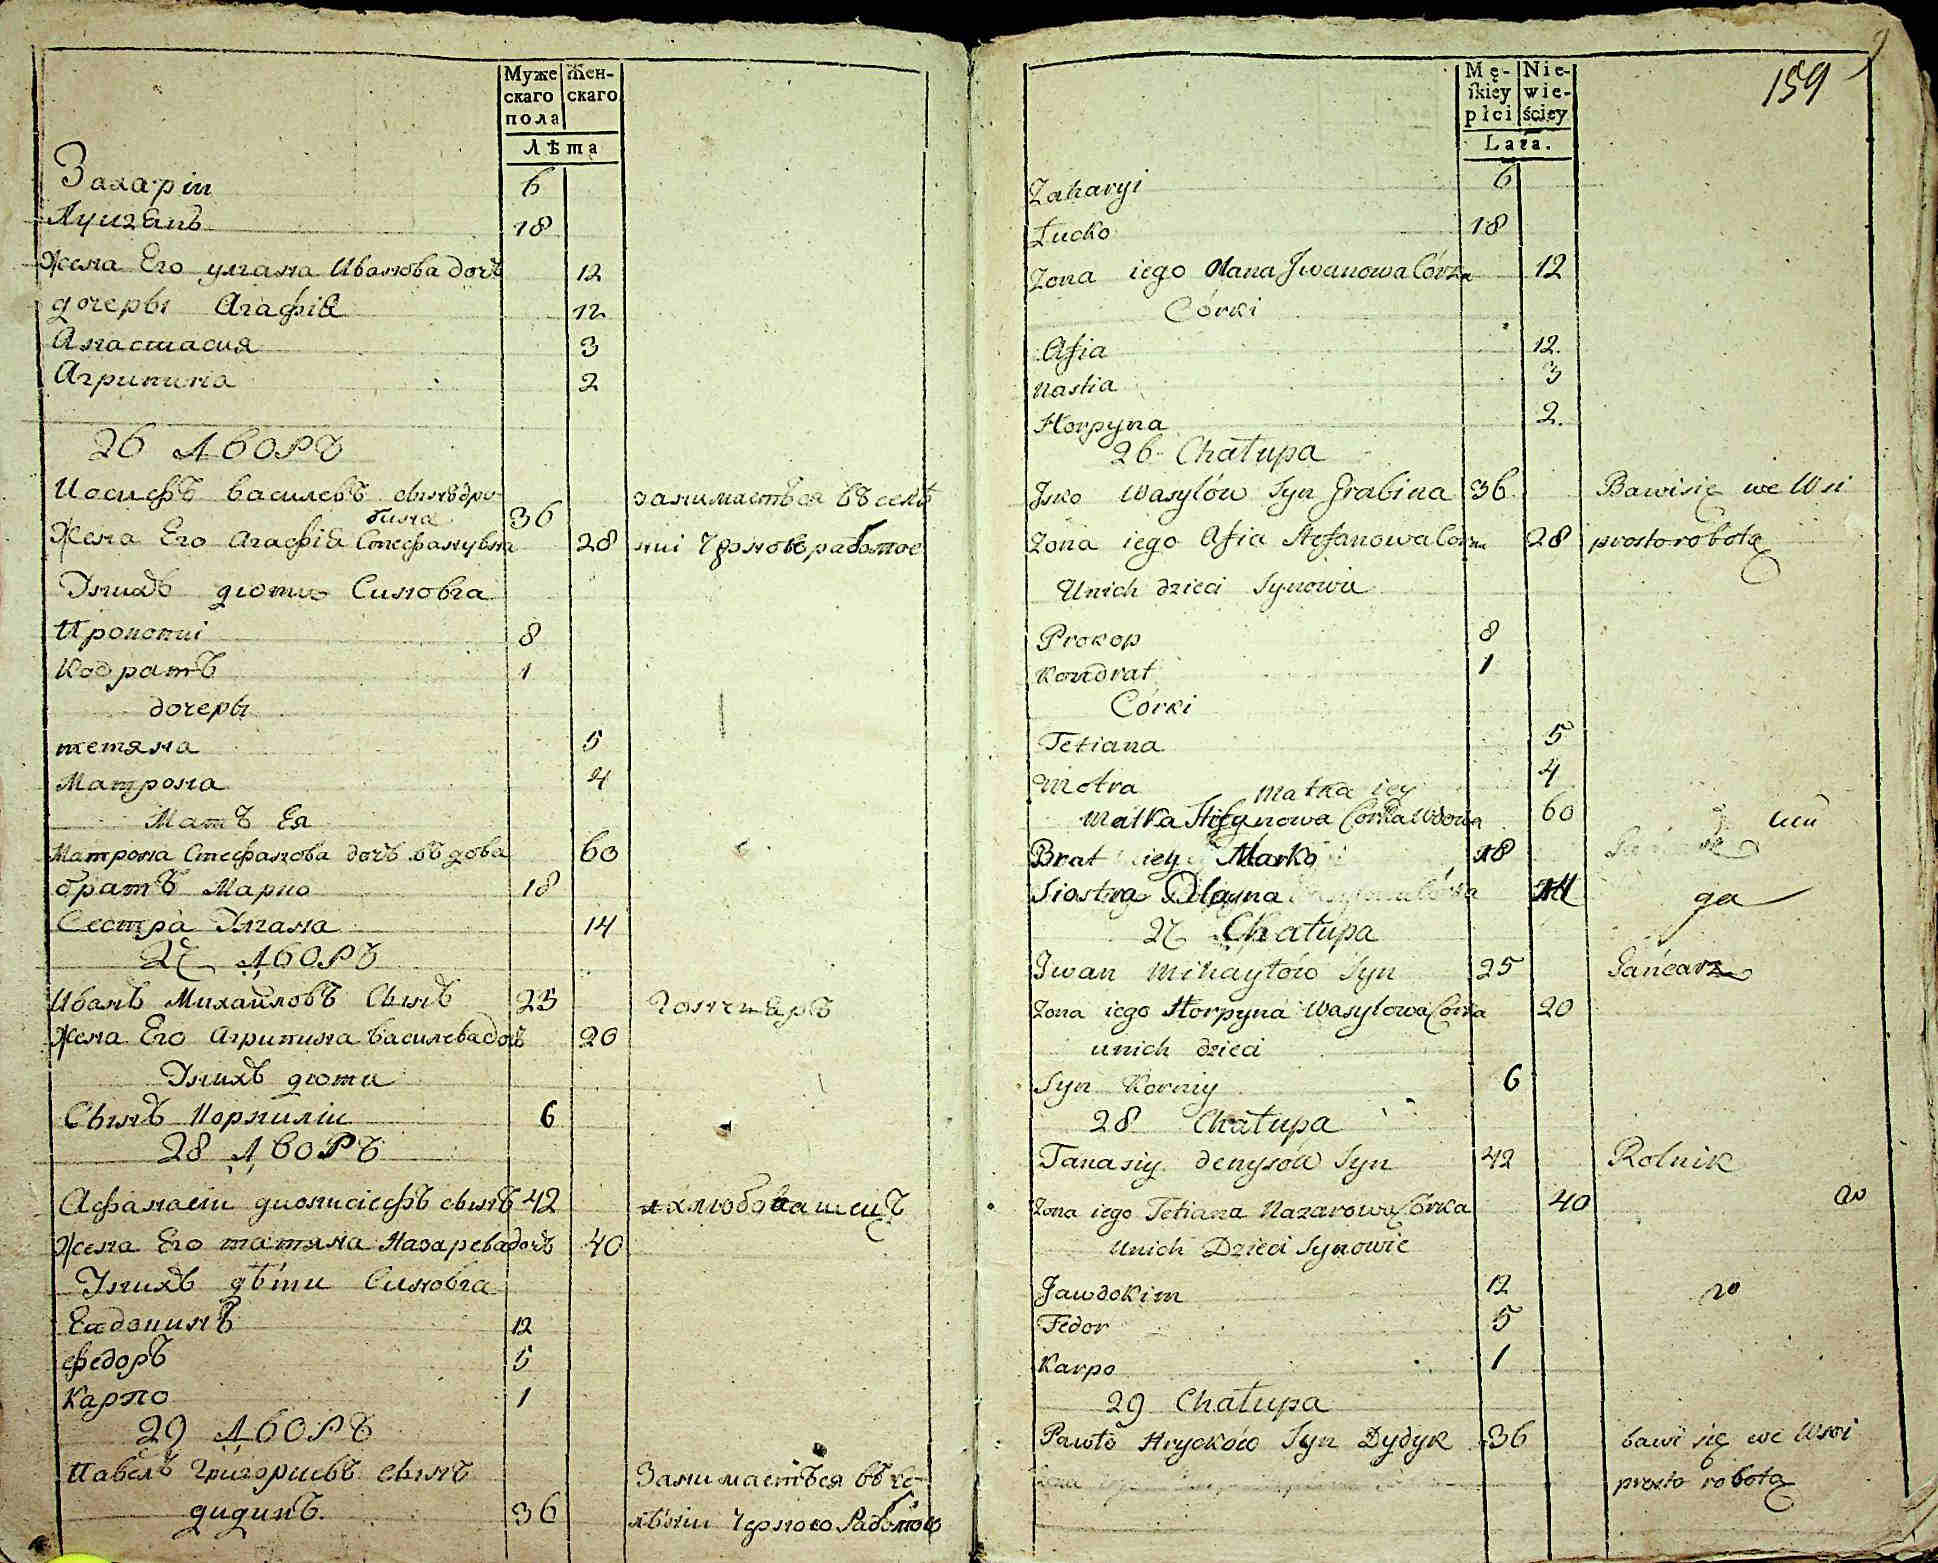 Муже Жен-
скаго скаго
пола
Лѣта
Захарiи 6
Луцганъ 18
Жена Его улiана Иванова дочъ 12
дочеры Агафiя 12
Анастасия 3
Агрипина 2
26 ДВОРЪ
Иосифъ василевъ сынъ дра-
бина 36 занимаетъся въ селѣ
Жена Его Агафiя Стефанувна 28 нiи Чорною работою
Унихъ дюти Синовıа
Прокопиi 8
Кодратъ 1
дочеры
тетяна 5
Матрона 4
Матъ Ея
Матрона Стефанова дочъ въдова 60
братъ Марко 18
Сестра Улiана 14
27 ДВОРЪ
Иванъ Михайловъ Сынъ 25 гончаръ
Жена Его Агрипина василева дочъ 20
Унихъ дюти
Сынъ Корнилiи 6
28 ДВОРЪ
Афанасiи дионисiефъ сынъ 42 хлюбопашецъ
Жена Его татяна Назарева дочъ 40
Унихъ дѣти Синовıа
Евдокимъ 12
федоръ 5
Карпо 1
29 ДВОРЪ
Павелъ Григориевъ сынъ Занимаетъся въ се-
дидикъ. 36 лѣнiи Чорною Работою
159
Mę- Nie-
skiey wie-
płci ściey
Lata.
Zaharyi 6
Łucko 18
Zona iego Olana Jwanowa Córka 12
Córki
Afia 12.
Nastia 3
Horpyna 2.
26 Chałupa
Jsko Wasylów Syn Drabina 36 Bawi się we Wsi
Zona iego Afia Stefanowa Corka 28 prosto robotą
Unich dzieci Synowie
Prokop 8
Kondrat 1
Córki
Tetiana 5
Motra 4
Matka iey
Matka Stefanowa Corka Wdowa 60
Brat iey Marko 18
Siostra Olayna 14 ga
27 Chałupa
Jwan Mihayłów Syn 25 Gańcarz
Zona iego Horpyna Wasylowa Corka 20
unich dzieci
Syn Korniy 6
28 Chałupa
Tanasiy denysów Syn 42 Rolnik
Zona iego Tetiana Nazarowa Córka 40
Unich Dzieci Synowie
Jawdokim 12
Fedor 5
Karpo 1
29 Chałupa
Pawło Hryckow Syn Dydyk 36 bawi się we Wsi
prosto robotą